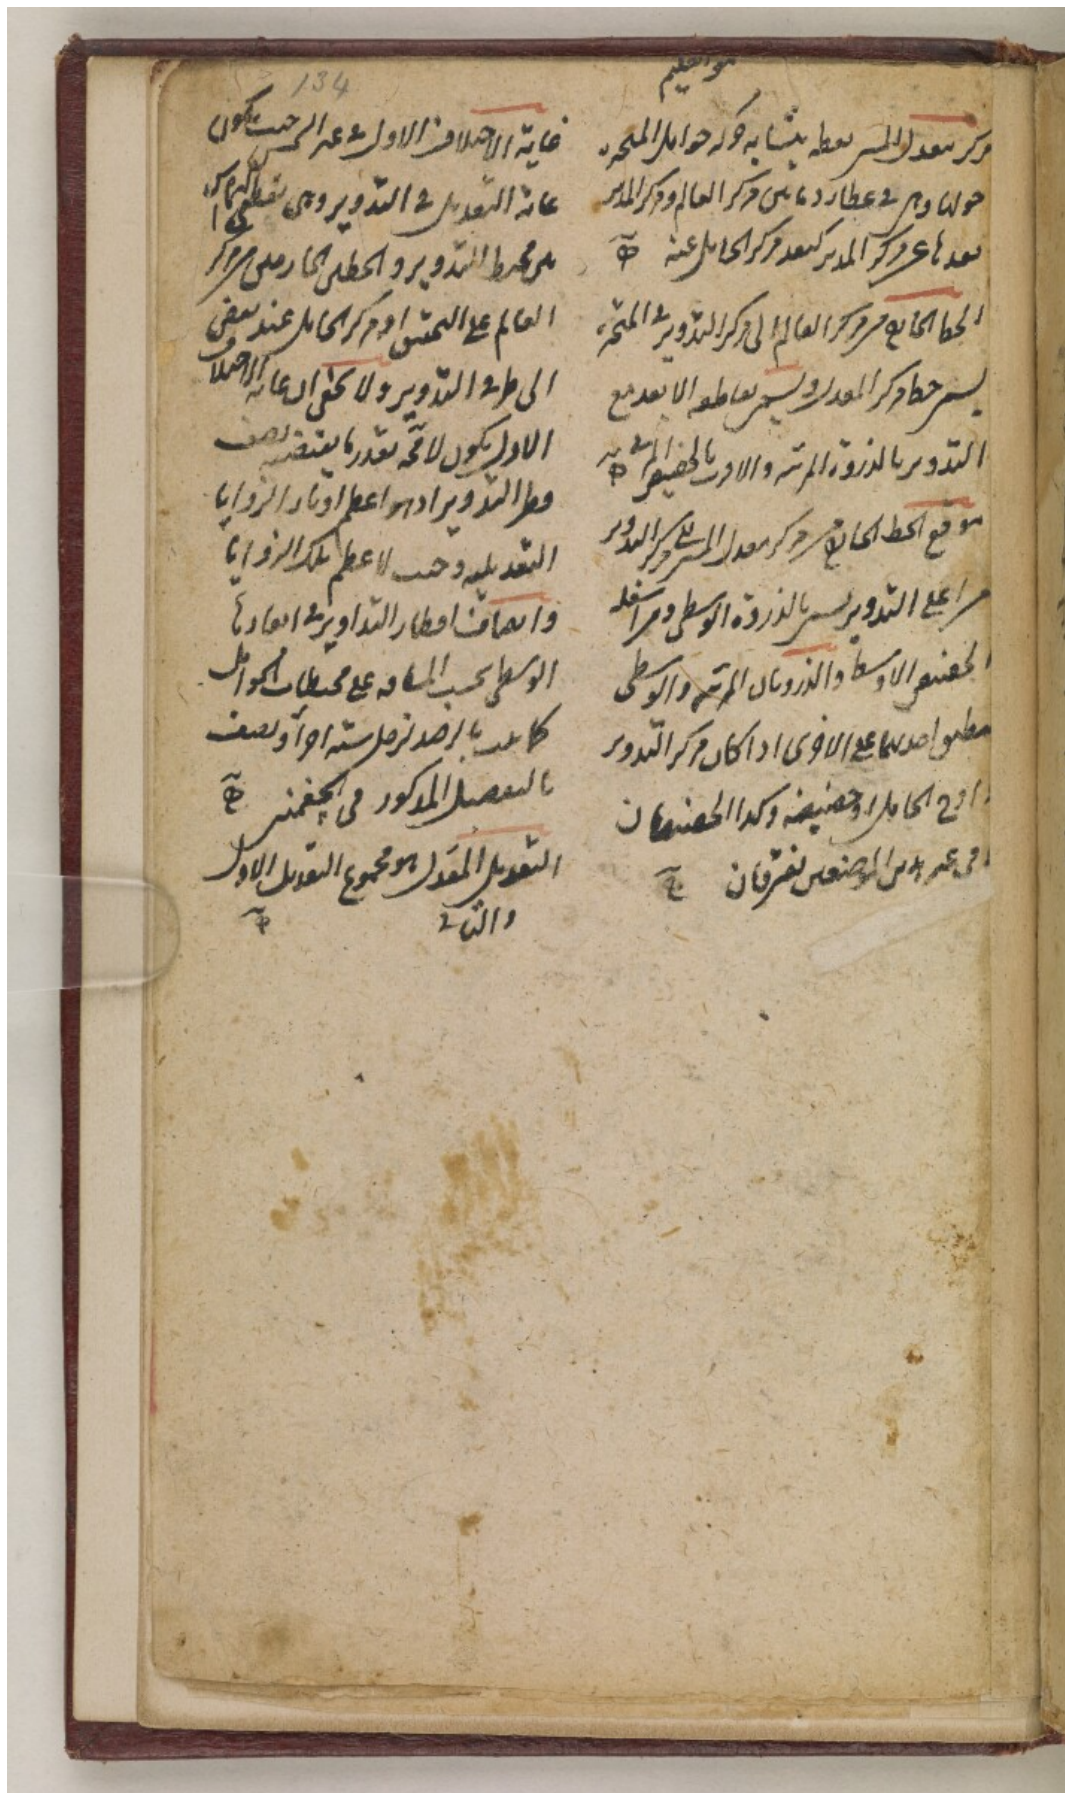 134
هو العليم
مركز معدل المسير نقطة يتشابه حركة حوامل المتحيرة
حولها وهى فى عطارد ما بين مركز العالم ومركز المدير
بعدها عن مركز المدير كبعد مركز الحامل عنه
الخط الخارج من مركز العالم الى مركز التدوير فى المتحيرة
يسمى خط مركز المعدل ويسمى تقاطعه الابعد مع
التدوير بالذروة المرئية والاقرب بالحضيض المرئى
موقع الخط الخارج من مركز معدل المسير الى مركز التدوير
من اعلى التدوير يسمى بالذروة الوسطى ومن اسفله
الحضيض الاوسط والذروتان المرئية والوسطى
ينطبق احدهما على الاخرى اذا كان مركز التدوير
اوج الحامل او حضيضه وكذا الحضيضان
فى غير هذين الموضعين يفترقان
غاية الاختلاف الاول فى غير الشمس حيث يكون
غاية التعديل فى التدوير وهى نقطة
بين محيط التدوير والخط الخارج من مركز
العالم على التحقيق او مركز الحامل عند بعض
الى طرف التدوير ولا يخفى ان غاية الاختلاف
الاول يكون لا محة بقدر ما يقتضيه نصف
قطر التدوير اذ هو اعظم اوتار الزوايا
التعديلية وحيث لا اعظم تلك الزوايا
وانصاف اقطار التداوير فى ابعادها
الوسطى بحسب المسافة على محيطات الحوامل
كما علمت بالرصد لزحل ستة اجزآ ونصف
بالتفصيل المذكور فى الچغمنى
التعديل المعدل هو مجموع التعديل الاول
والثانى